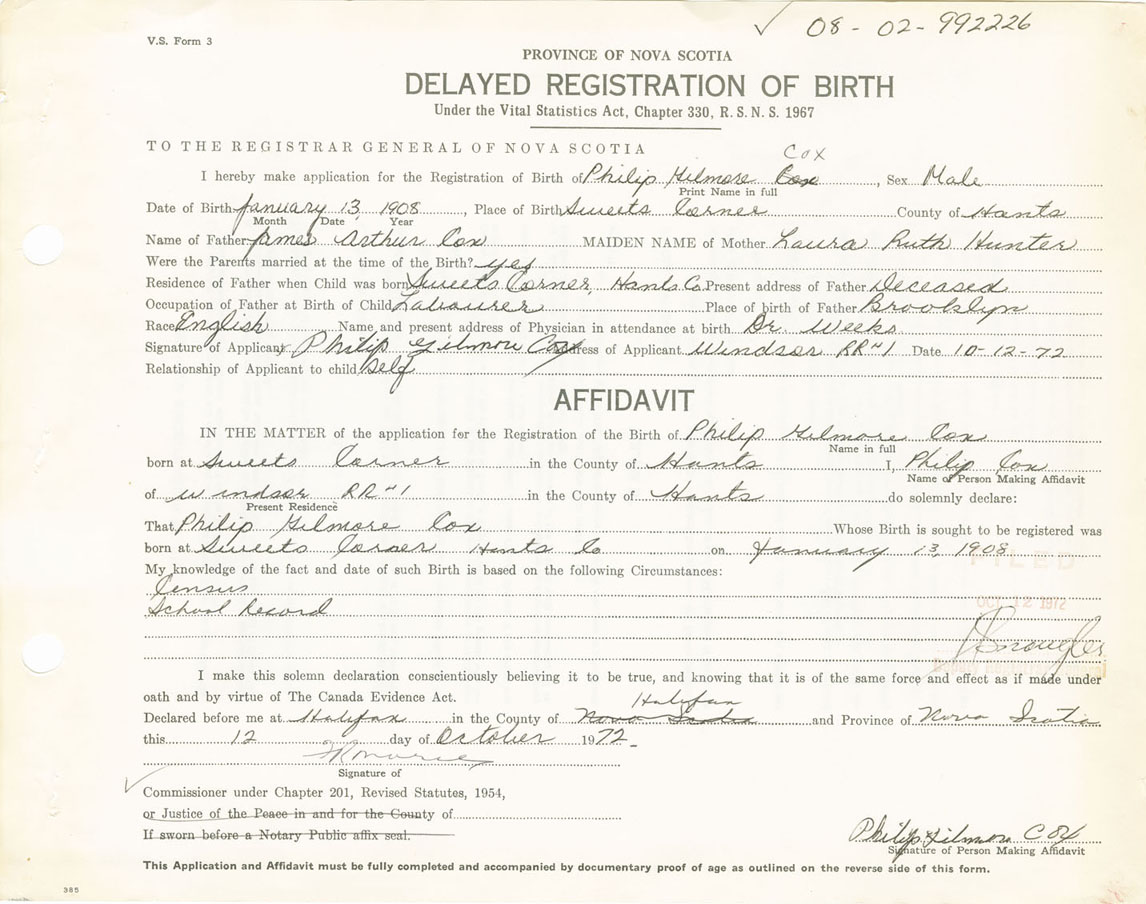 08 - 02 - 992226
V.S. Form 3
PROVINCE OF NOVA SCOTIA
DELAYED REGISTRATION OF BIRTH
Under the Vital Statistics Act, Chapter 330, R. S. N. S. 1967
TO THE REGISTRAR GENERAL OF NOVA SCOTIA
Cox
I hereby make application for the Registration of Birth of Philip Gilmore Cox, Sex Male
Print Name in full
Date of Birth January 13 1908, Place of Birth Sweets Corner County of Hants
Month Date Year
Name of Father James Arthur Cox MAIDEN NAME of Mother Laura Ruth Hunter
Were the Parents married at the time of the Birth? yes
Residence of Father when Child was born Sweets Corner, Hants Co. Present address of Father Deceased
Occupation of Father at Birth of Child Labourer Place of birth of Father Brooklyn
Race English Name and present address of Physician in attendance at birth Dr. Weeks
Signature of Applicant Philip Gilmore Cox Address of Applicant Windsor RR"1 Date 10-12-72
Relationship of Applicant to child Self
AFFIDAVIT
IN THE MATTER of the application for the Registration of the Birth of Philip Gilmore Cox
Name in full
born at Sweets Corner in the County of Hants I, Philip Cox
Name of Person Making Affidavit
of Windsor RR"1 in the County of Hants do solemnly declare:
Present Residence
That Philip Gilmore Cox Whose Birth is sought to be registered was
born at Sweets Corner Hants Co on January 13, 1908
FILED
My knowledge of the fact and date of such Birth is based on the following Circumstances:
Census
School Record
OCT 12 1972
I make this solemn declaration conscientiously believing it to be true, and knowing that it is of the same force and effect as if made under
oath and by virtue of The Canada Evidence Act.
Halifax
Declared before me at Halifax in the County of Nova Scotia and Province of Nova Scotia
this 12 day of October 1972
Signature of
Commissioner under Chapter 201, Revised Statutes, 1954,
or Justice of the Peace in and for the County of
If sworn before a Notary Public affix seal.
Philip Gilmore Cox
Signature of Person Making Affidavit
This Application and Affidavit must be fully completed and accompanied by documentary proof of age as outlined on the reverse side of this form.
385